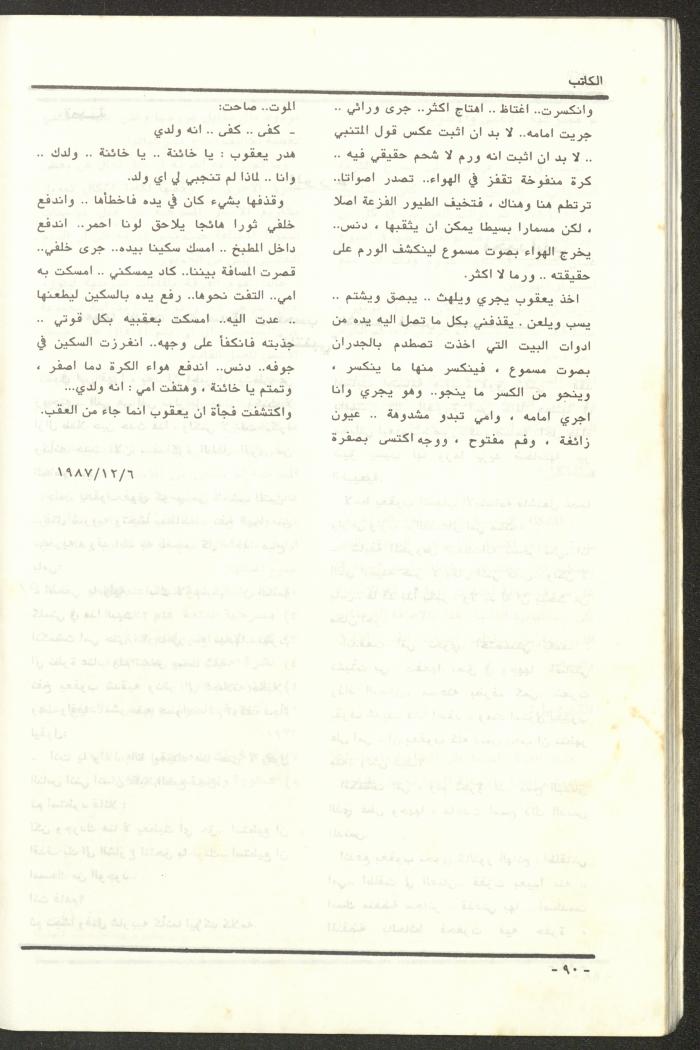 الكاتب
وانكسرت.. اغتاظ .. اهتاج اكثر.. جرى ورائي ..
جريت امامه.. لا بد ان اثبت عكس قول المتنبي
.. لا بد ان اثبت انه ورم لا شحم حقيقي فيه ..
كرة منفوخة تقفز في الهواء.. تصدر اصواتا..
ترتطم هنا وهناك ، فتخيف الطيور الفزعة اصلا
، لكن مسمارا بسيطا يمكن ان يثقبها ، دنس..
يخرج الهواء بصوت مسموع لينكشف الورم على
حقيقته .. ورما لا اكثر.
اخذ يعقوب يجري ويلهث .. يبصق ويشتم ..
يسب ويلعن . يقذفني بكل ما تصل اليه يده من
ادوات البيت التي اخذت تصطدم بالجدران
بصوت مسموع ، فينكسر منها ما ينكسر ،
وينجو من الكسر ما ينجو.. وهو يجري وانا
اجري امامه ، وامي تبدو مشدوهة .. عيون
زائغة ، وفم مفتوح ، ووجه اكتسى بصفرة
الموت.. صاحت:
ـ كفى .. كفى .. انه ولدي
هدر يعقوب : يا خائنة .. يا خائنة .. ولدك ..
وانا .. لماذا لم تنجبي لي اي ولد.
وقذفها بشيء كان في يده فاخطأها .. واندفع
خلفي ثورا هائجا يلاحق لونا احمر.. اندفع
داخل المطبخ .. امسك سكينا بيده.. جرى خلفي..
قصرت المسافة بيننا.. كاد يمسكني .. امسكت به
امي.. التفت نحوها.. رفع يده بالسكين ليطعنها
.. عدت اليه.. امسكت بعقبيه بكل قوتي ..
جذبته فانكفأ على وجهه.. انغرزت السكين في
جوفه.. دنس.. اندفع هواء الكرة دما اصفر ،
وتمتم يا خائنة ، وهتفت امي : انه ولدي...
واكتشفت فجأة ان يعقوب انما جاء من العقب.
١٩٨٧/١٢/٦
- ٩٠ -